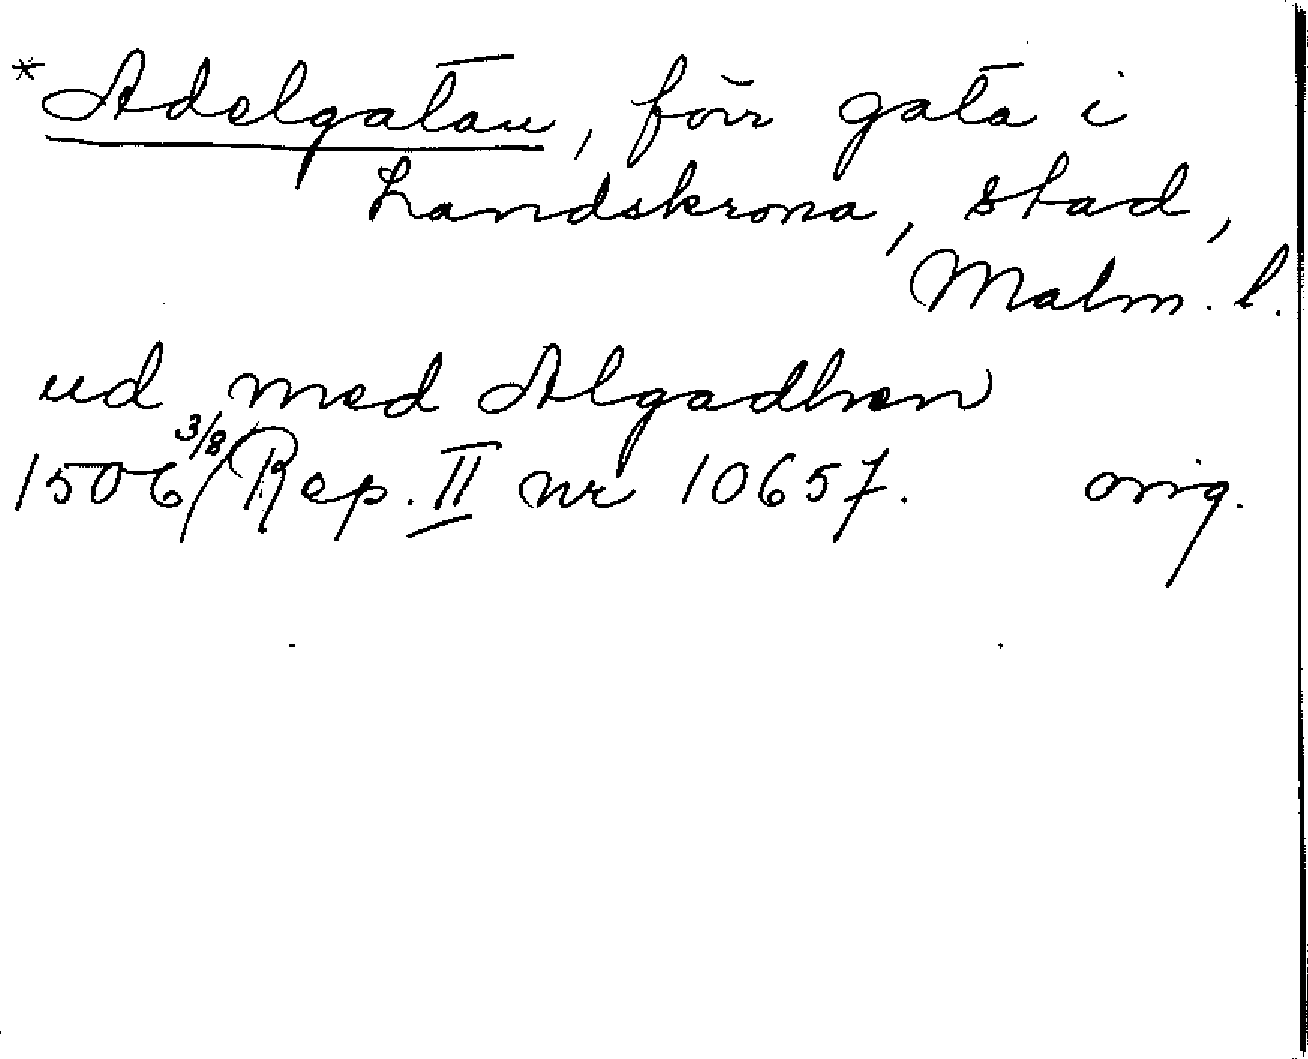 *Adelgatan, förr gata i
Landskrona, stad,
Malm. l.
ud med Algadhen
1506 3/8/Rep. II nr 10657. orig.